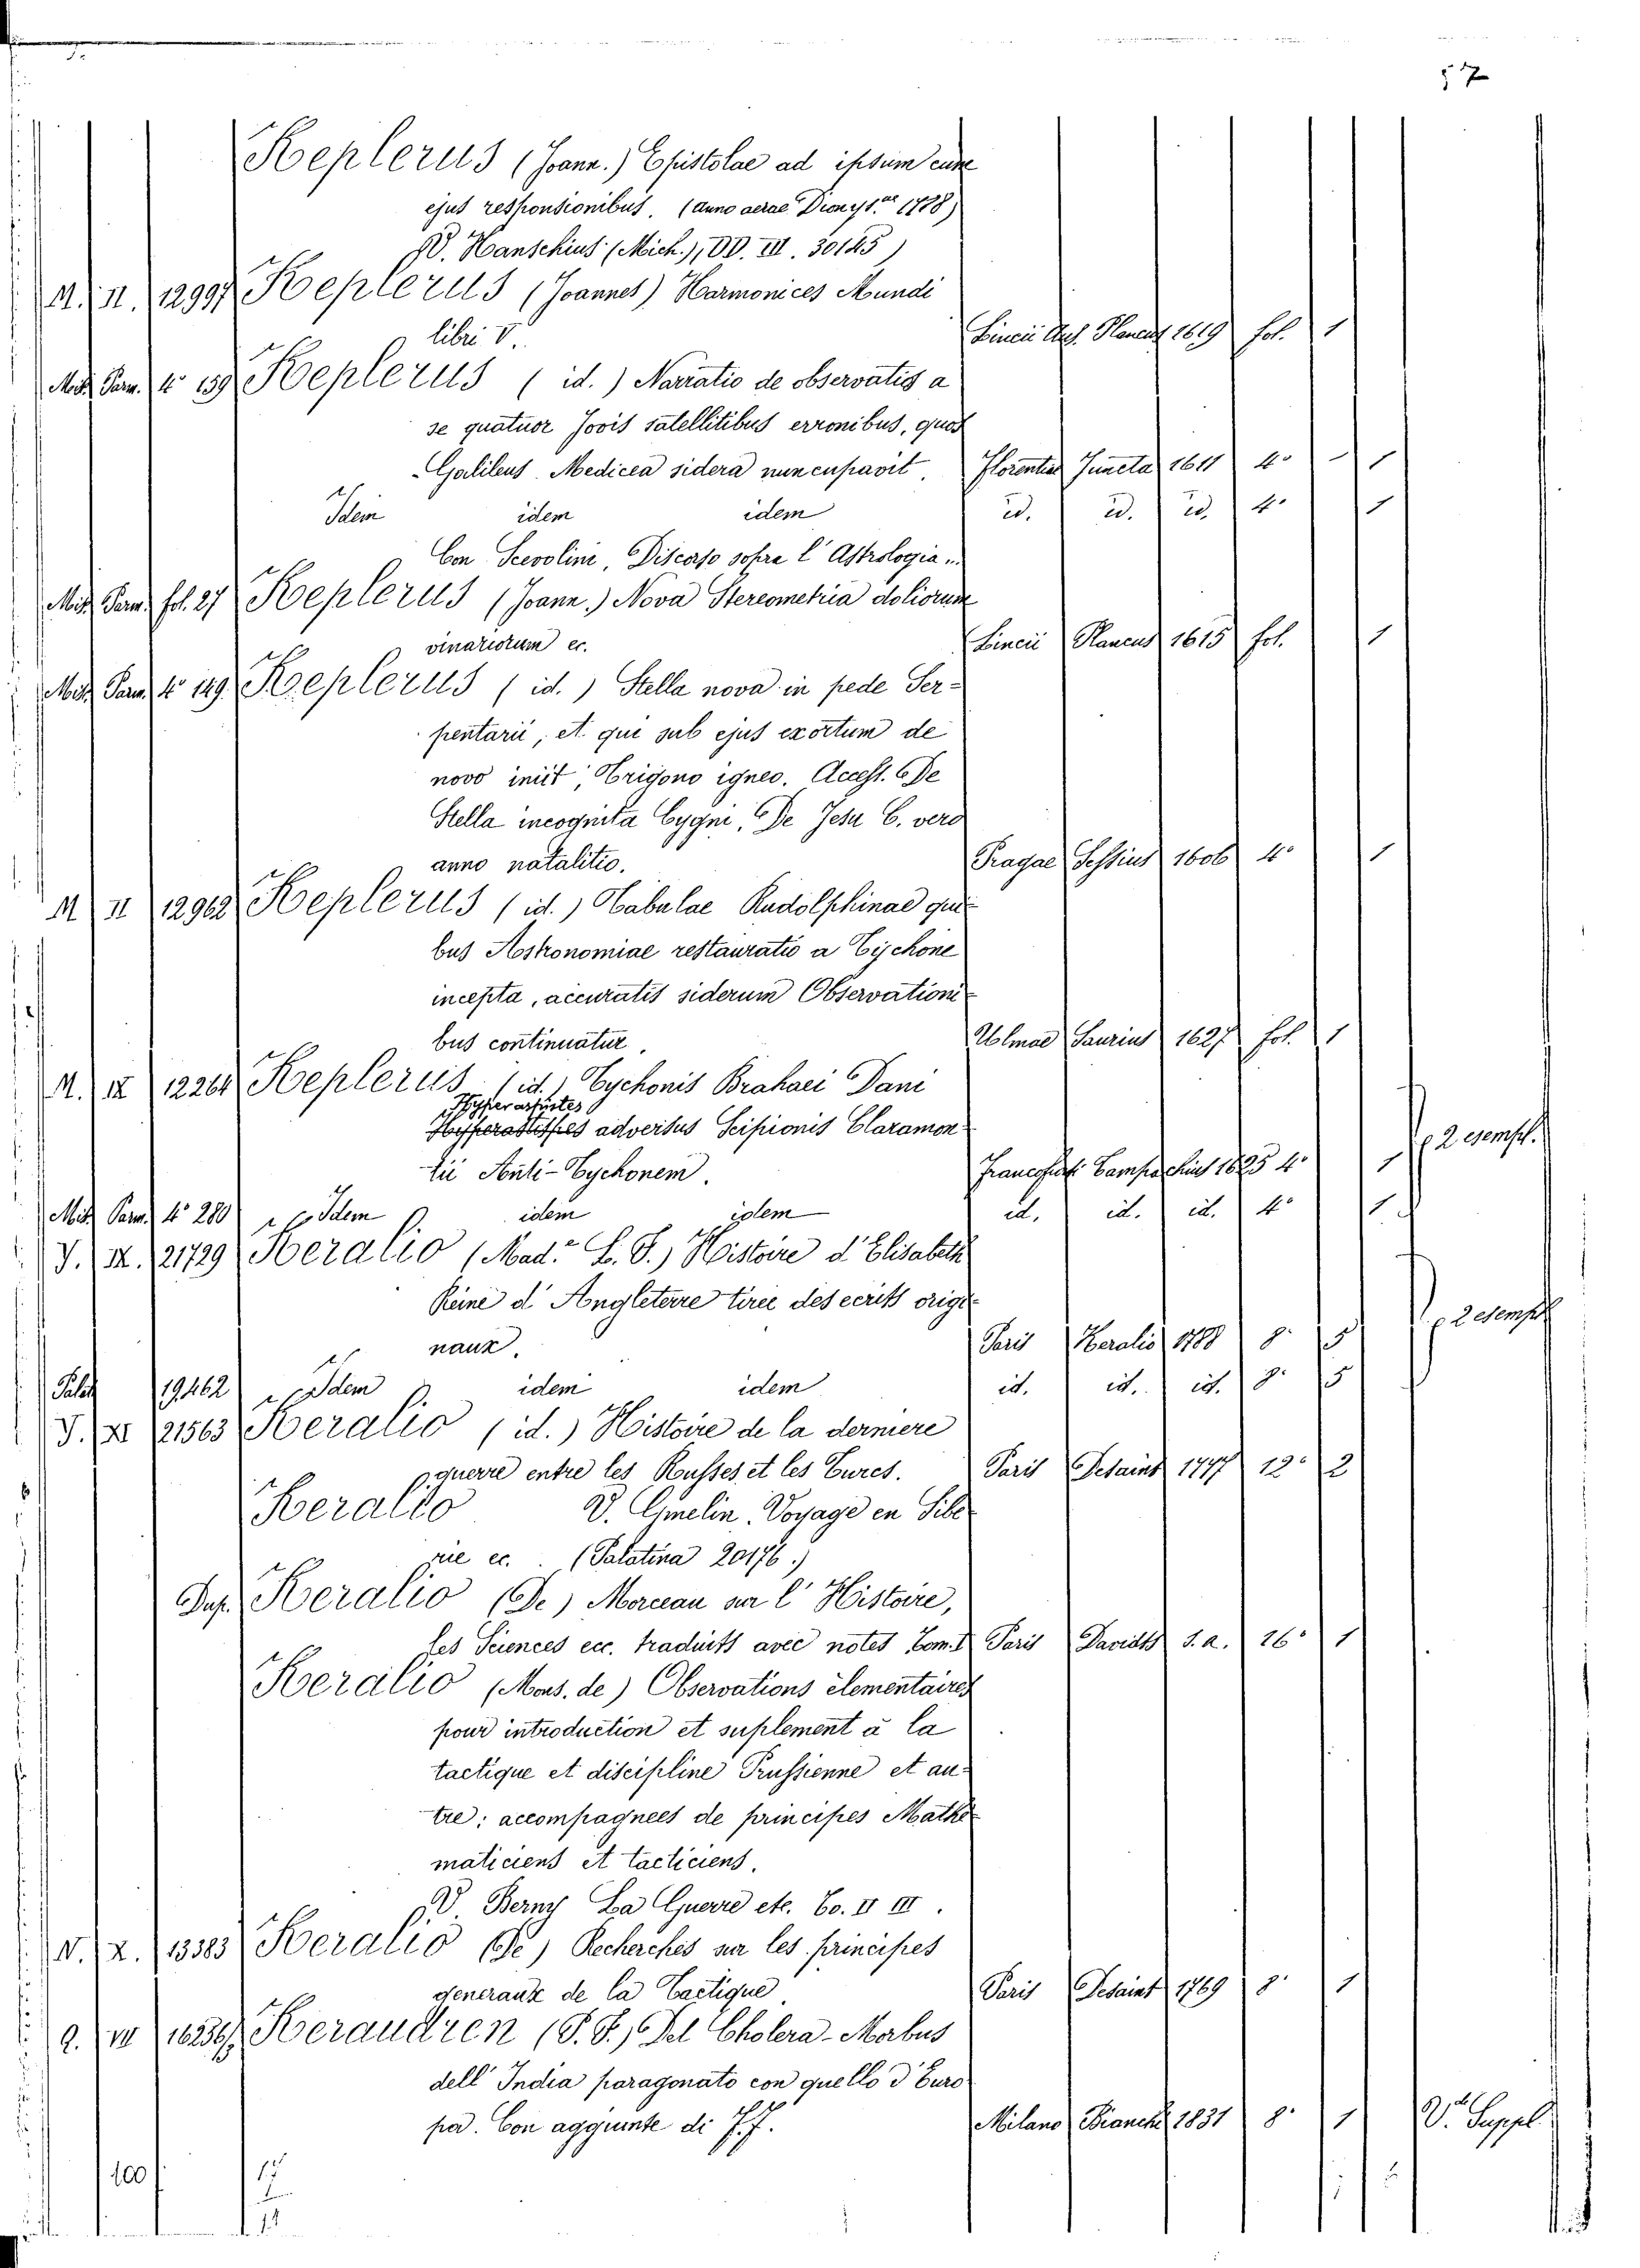 57
Keplerus (Joann.) Epistolae ad ipsum cum
ejus responsionibus. (anno aerae Dionys.ae 1718)
V. Hanschius (Mich.), DD. III. 30145)
M. II. 12997 Keplerus (Joannes) Harmonices Mundi
libri V. Lincii Aus. Plancus 1619 fol. 1
Misc. Parm. 4° 159 Keplerus (id.) Narratio de observatis a
se quatuor Jovis satellitibus erronibus, quos
Galileus Medicea sidera nuncupavit. Florentiae Juncta 1611 4° 1
Idem idem idem id. id. id. 4° 1
Con Scevolini, Discorso sopra l'Astrologia
Misc. Parm. fol. 27 Keplerus (Joann.) Nova Stereometria doliorum
vinariorum ec. Lincii Plancus 1615 fol. 1
Misc. Parm. 4° 149. Keplerus (id.) Stella nova in pede Ser-
pentarii, et qui sub ejus exortum de
novo iniit, Trigono igneo. Access. De
Stella incognita Cygni, De Jesu C. vero
anno natalitio. Pragae Sessius 1606 4° 1
M II 12962 Keplerus (id.) Tabulae Rudolphinae qui-
bus Astronomiae restauratio a Tychone
incepta, accuratis siderum Observationi-
bus continuatur. Ulmae Saurius 1627 fol. 1
M. IX 12264 Keplerus (id.) Tychonis Brahaei Dani
Hyperaspistes
Hyperastisses adversus Scipionis Claramon-
tii Anti-Tychonem. Francofurti Tampachius 1625 4° 1 2 esempl.
Misc. Parm. 4° 280 Idem idem idem id. id. id. 4° 1
V. IX. 21729 Keralio (Mad.e L. F.) Histoire d'Elisabeth
Reine d'Angleterre tirée des ecrits origi-
naux. Paris Keralio 1788 8° 5 2 esempl.
Palat. 19462 Idem idem idem id. id. id. 8° 5
V. XI 21563 Keralio (id.) Histoire de la derniere
guerre entre les Russes et les Turcs. Paris Desaint 1777 12° 2
Keralio V. Gmelin. Voyage en Sibe-
rie ec. (Palatina 20176.)
Dup. Keralio (De) Morceau sur l'Histoire,
les Sciences ecc. traduits avec notes Tom. I Paris Davidts s. a. 16° 1
Keralio (Mons. de) Observations élementaires
pour introduction et suplement à la
tactique et discipline Prussienne et au-
tre; accompagnees de principes Mathe-
maticiens et tacticiens.
V. Berny La Guerre etc. To. II III.
N. X. 13383 Keralio (De) Recherches sur les principes
generaux de la Tactique Paris Desaint 1769 8° 1
Q. VII Keraudren (P. F.) Del Cholera-Morbus
dell'India paragonato con quello d'Euro-
pa. Con aggiunte di F. F. Milano Bianchi 1831 8° 1 V. Suppl.
100